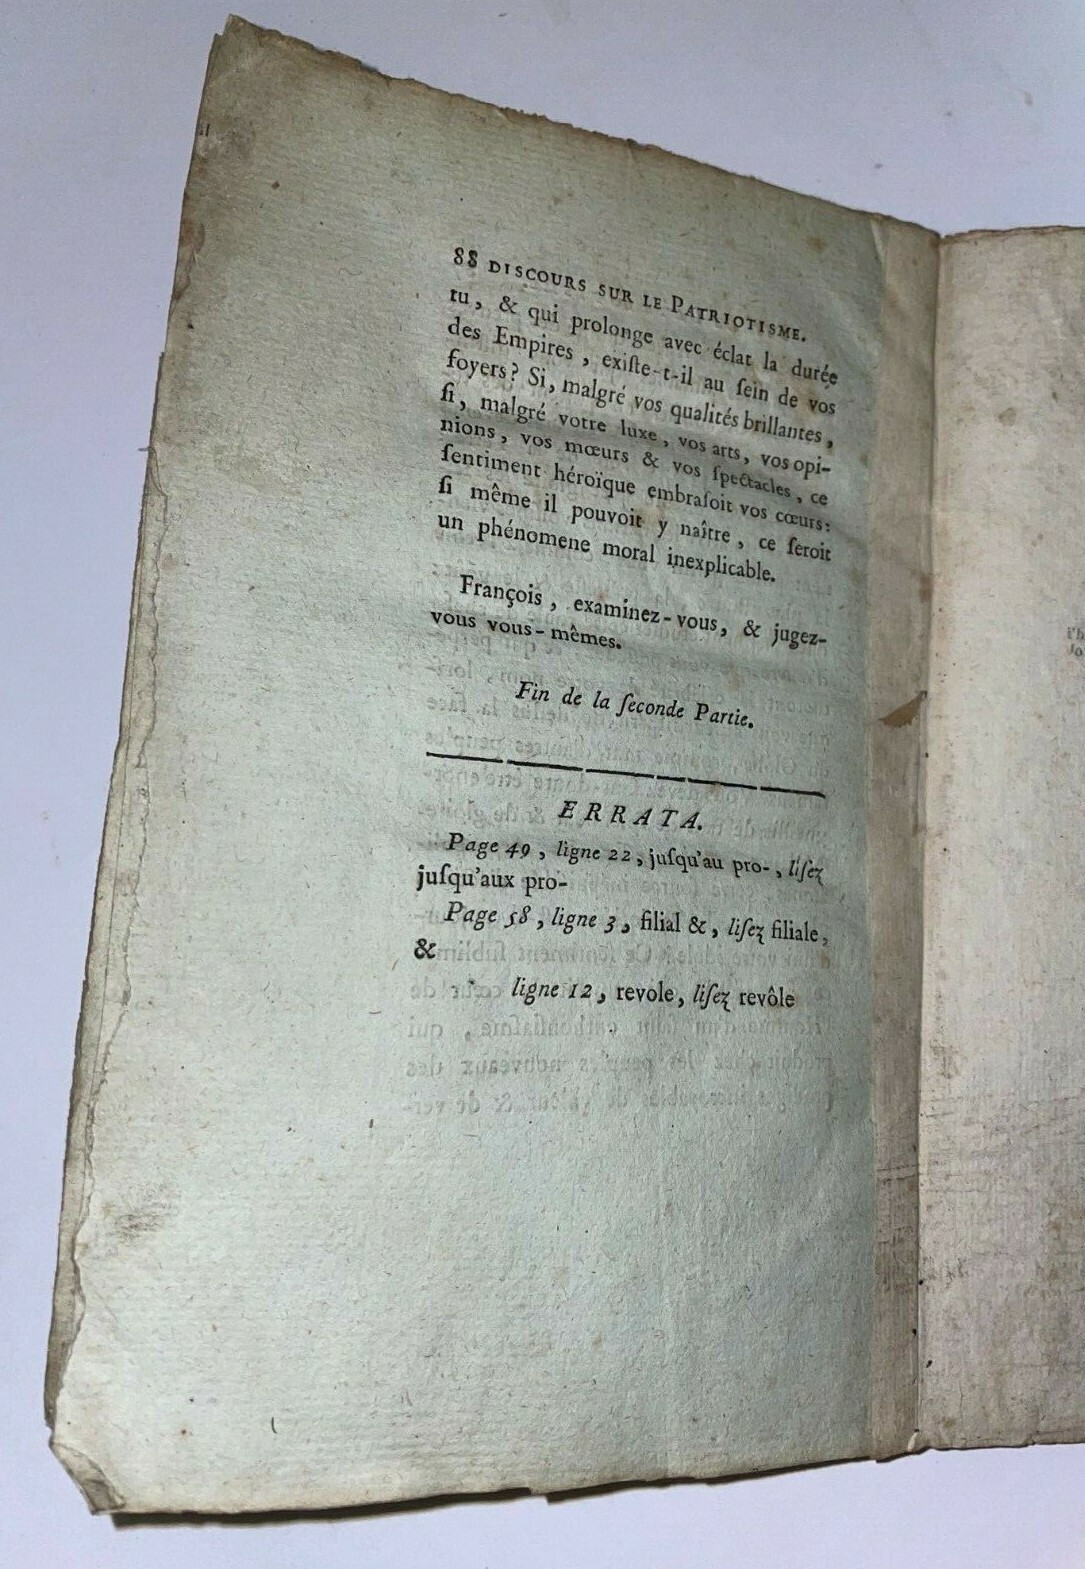 88 DISCOURS SUR LE PATRIOTISME.
tu, & qui prolonge avec éclat la durée
des Empires, exiſte-t-il au ſein de vos
foyers? Si, malgré vos qualités brillantes,
ſi, malgré votre luxe, vos arts, vos opi-
nions, vos mœurs & vos ſpectacles, ce
ſentiment héroïque embraſoit vos cœurs:
ſi même il pouvoit y naître, ce ſeroit
un phénomene moral inexplicable.
François, examinez-vous, & jugez-
vous vous-mêmes.
Fin de la ſeconde Partie.
ERRATA.
Page 49, ligne 22, juſqu'au pro-, liſez
juſqu'aux pro-
Page 58, ligne 3, filial &, liſez filiale,
&
ligne 12, revole, liſez revôle